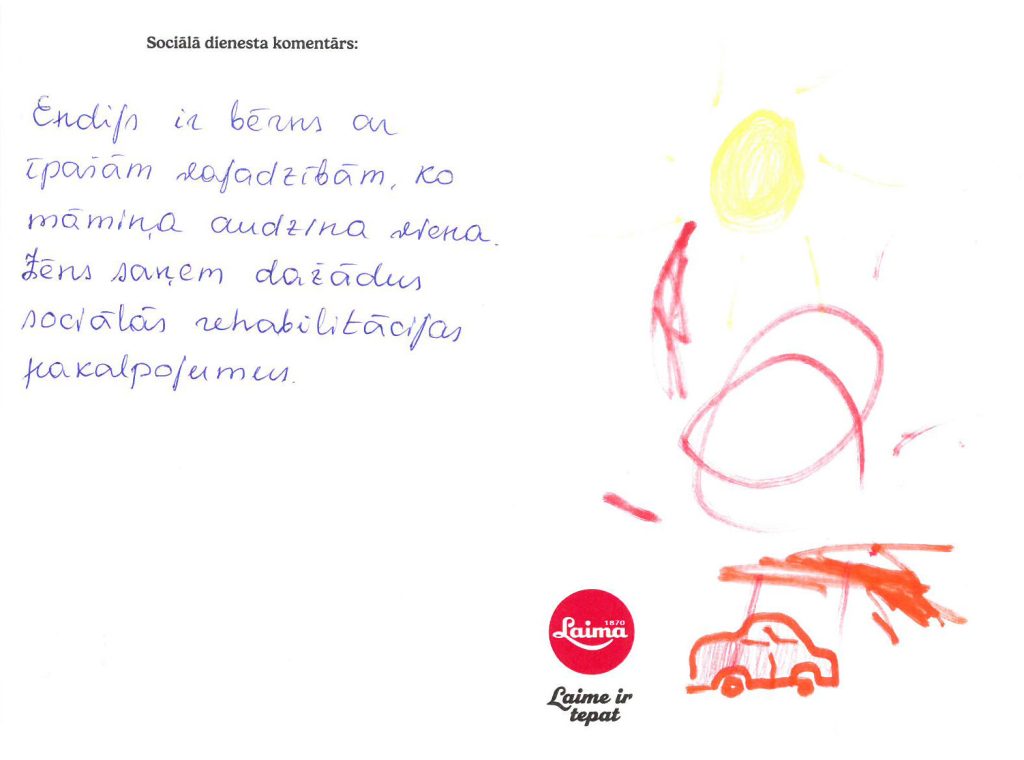 Sociālā dienesta komentārs:
Endijs ir bērns ar
īpašām vajadzībām, ko
māmiņa audzina viena.
Zēns saņem dažādus
sociālās rehabilitācijas
pakalpojumus.
1870
Laima
Laime ir
tepat